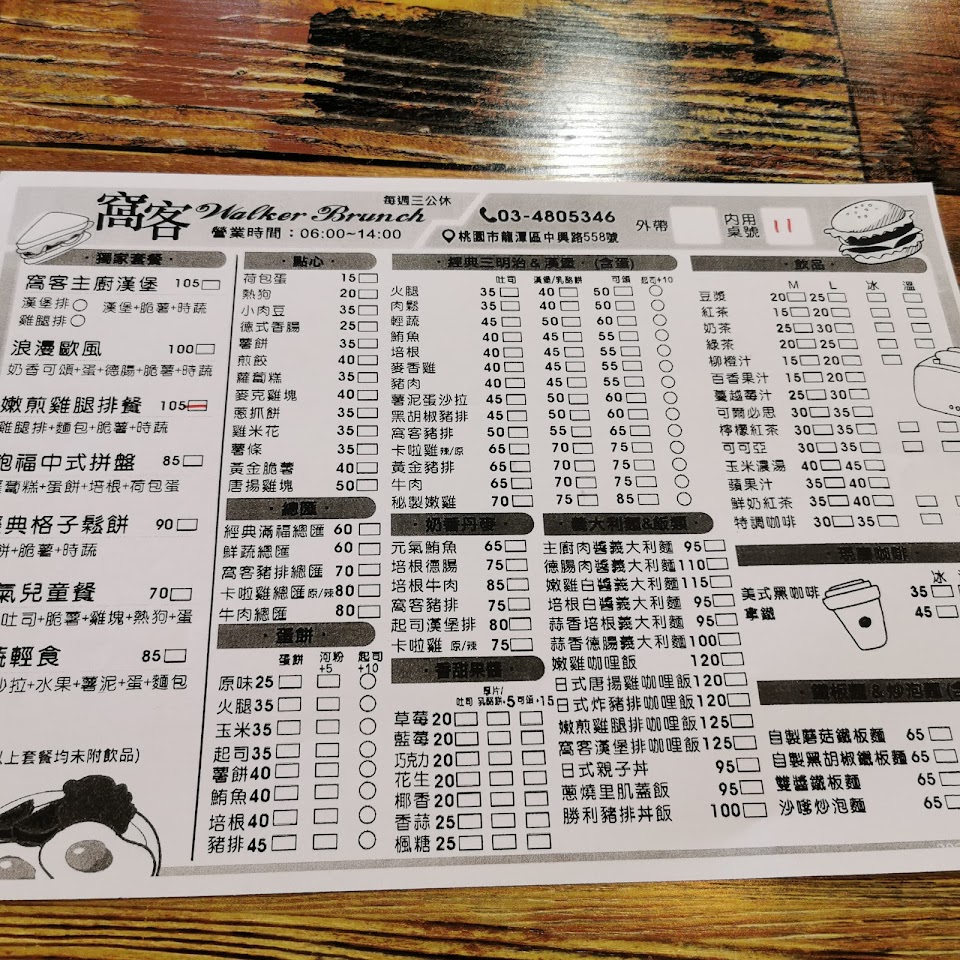 窩客 Walker Brunch
每週三公休
營業時間：06:00~14:00
03-4805346
桃園市龍潭區中興路558號
外帶
內用桌號 11
獨家套餐
窩客主廚漢堡 105
漢堡排 漢堡+脆薯+時蔬
雞腿排
浪漫歐風 100
奶香可頌+蛋+德腸+脆薯+時蔬
嫩煎雞腿排餐 105
雞腿排+麵包+脆薯+時蔬
飽福中式拼盤 85
蘿蔔糕+蛋餅+培根+荷包蛋
經典格子鬆餅 90
餅+脆薯+時蔬
氣兒童餐 70
吐司+脆薯+雞塊+熱狗+蛋
輕食 85
沙拉+水果+薯泥+蛋+麵包
以上套餐均未附飲品)
點心
荷包蛋 15
熱狗 20
小肉豆 35
德式香腸 25
薯餅 35
煎餃 40
蘿蔔糕 35
麥克雞塊 40
蔥抓餅 35
雞米花 35
薯條 35
黃金脆薯 40
唐揚雞塊 50
總匯
經典滿福總匯 60
鮮蔬總匯 60
窩客豬排總匯 70
卡啦雞總匯原/辣 80
牛肉總匯 80
蛋餅
蛋餅 河粉+5 起司+10
原味 25
火腿 35
玉米 35
起司 35
薯餅 40
鮪魚 40
培根 40
豬排 45
經典三明治&漢堡 (含蛋)
吐司 漢堡/乳酪餅 可頌 起司+10
火腿 35 40 50
肉鬆 35 40 50
輕蔬 45 50 60
鮪魚 40 45 55
培根 40 45 55
麥香雞 40 45 55
豬肉 40 45 55
薯泥蛋沙拉 45 50 55
黑胡椒豬排 45 50 55
窩客豬排 50 55 60
卡啦雞辣/原 65 70 75
黃金豬排 65 70 75
牛肉 65 70 75
秘製嫩雞 70 75 85
奶香丹麥
元氣鮪魚 65
培根德腸 75
培根牛肉 85
窩客豬排 75
起司漢堡排 80
卡啦雞 原/辣 75
香甜果醬
吐司 厚片/乳酪餅+5 可頌+15
草莓 20
藍莓 20
巧克力 20
花生 20
椰香 20
香蒜 25
楓糖 25
義大利麵&飯類
主廚肉醬義大利麵 95
德腸肉醬義大利麵 110
嫩雞白醬義大利麵 115
培根白醬義大利麵 95
蒜香培根義大利麵 95
蒜香德腸義大利麵 100
嫩雞咖哩飯 120
日式唐揚雞咖哩飯 120
日式炸豬排咖哩飯 120
嫩煎雞腿排咖哩飯 125
窩客漢堡排咖哩飯 125
日式親子丼 95
蔥燒里肌蓋飯 95
勝利豬排丼飯 100
飲品
M L 冰 溫
豆漿 20 25
紅茶 15 20
奶茶 25 30
綠茶 20 25
柳橙汁 15 20
百香果汁 15 20
蔓越莓汁 25 30
可爾必思 30 35
檸檬紅茶 30 35
可可亞 30 35
玉米濃湯 40 45
蘋果汁 35 40
鮮奶紅茶 35 40
特調咖啡 30 35
咖啡
冰
美式黑咖啡 35
拿鐵 45
鐵板麵&炒泡麵
自製蘑菇鐵板麵 65
自製黑胡椒鐵板麵 65
雙醬鐵板麵 65
沙嗲炒泡麵 65